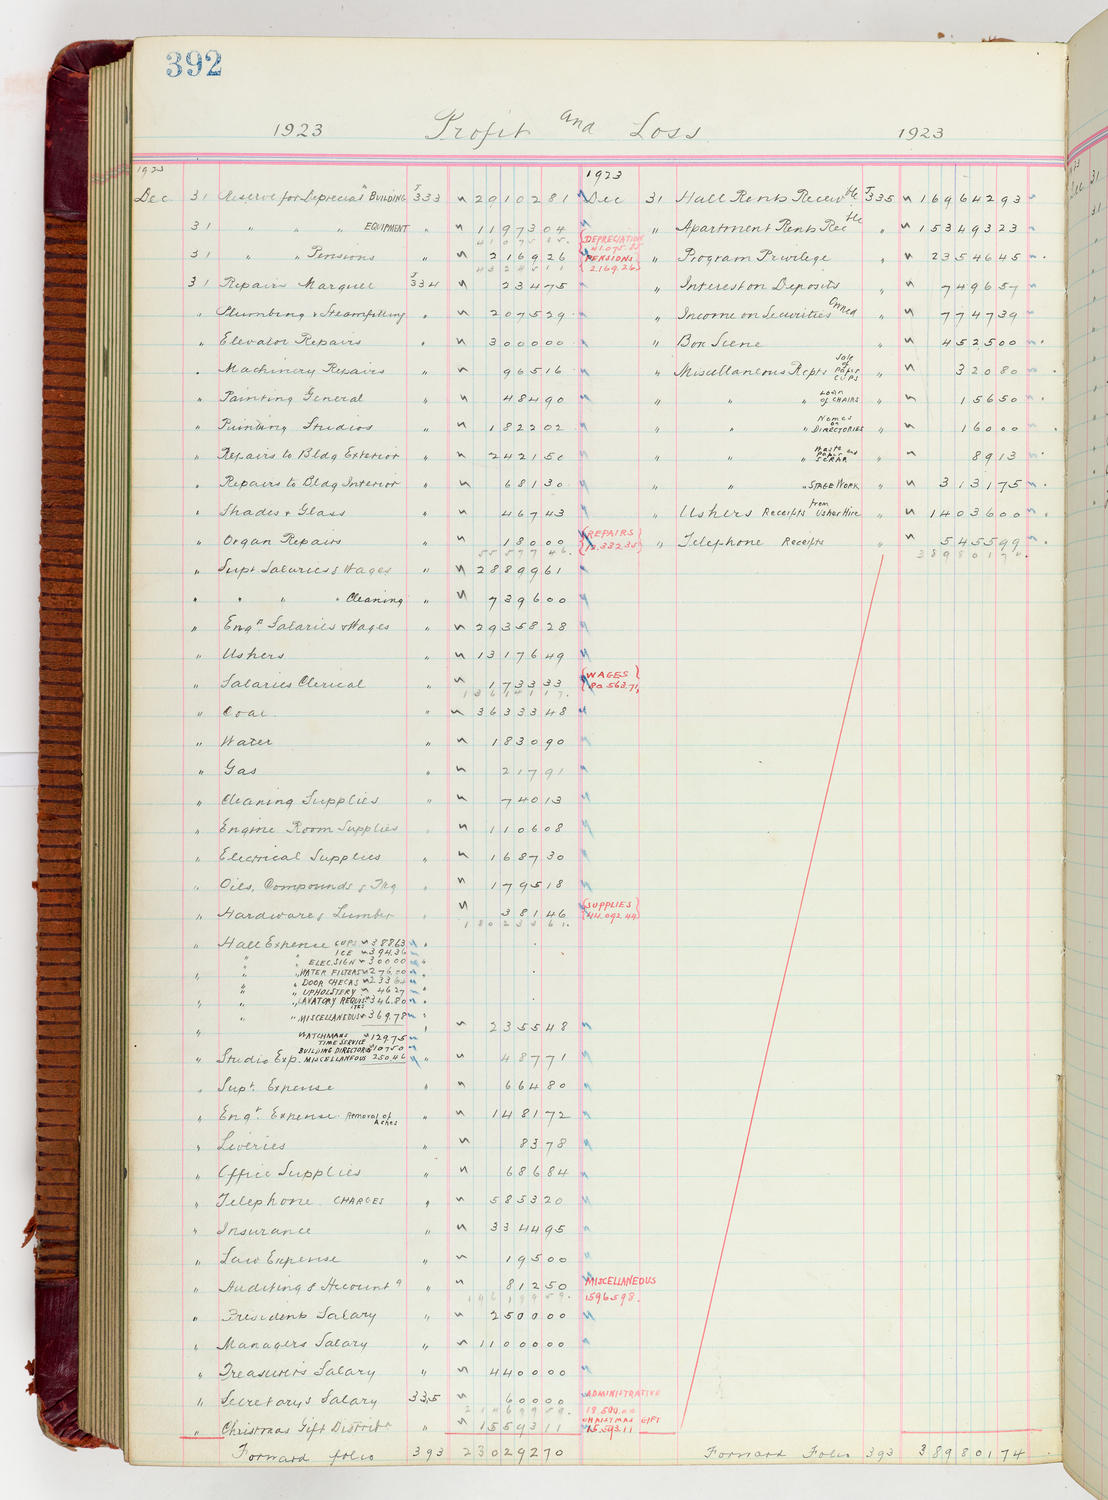 392
1923 Profit and Loss 1923
1923
Dec 31 Reserve for Deprecia" BUILDING J333 2910281
31 " " " EQUIPMENT " 1197304
4107585.
31 " " Pensions " 216926
4324511
31 Repairs Marquee J334 23475
" Plumbing & Steamfitting " 207529
" Elevator Repairs " 300000
" Machinery Repairs " 96516
" Painting General " 48490
" Painting Studios " 182202
" Repairs to Bldg Exterior " 242150
" Repairs to Bldg Interior " 68130
" Shades & Glass " 46743
" Organ Repairs " 18000
5557746.
" Supt Salaries & Wages " 2889961
" " " " Cleaning " 739600
" Engr Salaries & Wages " 2935828
" Ushers " 1317649
" Salaries Clerical " 173333
13614117.
" Coal " 3633348
" Water " 183090
" Gas " 21791
" Cleaning Supplies " 74013
" Engine Room Supplies 110608
" Electrical Supplies " 168730
" Oils, Compounds & Pkg 179518
" Hardware & Lumber " 38146
18023361.
" Hall Expense CUPS 388.63
" " ICE 394.36
" ELEC. SIGN 300.00
" " WATER FILTERS 276.00
" " DOOR CHECKS 233.64
" " UPHOLSTERY 46.27
" " LAVATORY REQUISITES 346.80
" " " MISCELLANEOUS 369.78
" 235548
WATCHMANS TIME SERVICE 129.75
BUILDING DIRECTORIES 107.50
" Studio Exp. MISCELLANEOUS 250.46 " 48771
" Supt. Expense " 66480
" Engr. Expense Removal of Ashes " 148172
" Liveries " 8378
" Office Supplies " 68684
" Telephone CHARGES " 585320
" Insurance " 334495
" Law Expense " 19500
" Auditing & Accountg " 81250
19619959.
" Presidents Salary " 250000
" Managers Salary " 1100000
" Treasurers Salary " 440000
" Secretarys Salary 335 60000
21469959.
" Christmas Gift Distribtn " 1559311
Forward folio 393 23029270
DEPRECIATION
41.075.85
PENSIONS
2169.26
REPAIRS
12.332.35
WAGES
80.563.71
SUPPLIES
44.092.44
MISCELLANEOUS
1596598.
ADMINISTRATIVE
18.500.00
CHRISTMAS GIFT
15.593.11
1923
Dec 31 Hall Rents Receivble J335 16964293
" Apartment Rents Recble " 15349323
" Program Privilege " 2354645
" Interest on Deposits " 749657
" Income on Securities Owned " 774739
" Box Scene " 452500
" Miscellaneous Rcpts Sale of Paper CUPS " 32080
" " " Loan of CHAIRS " 15650
" " " Names on DIRECTORIES " 16000
" " " Waste Paper and SCRAP " 8913
" " " STAGE WORK " 313175
" Ushers Receipts from Usher Hire " 1403600
" Telephone Receipts " 545599
38980174.
Forward Folio 393 38980174